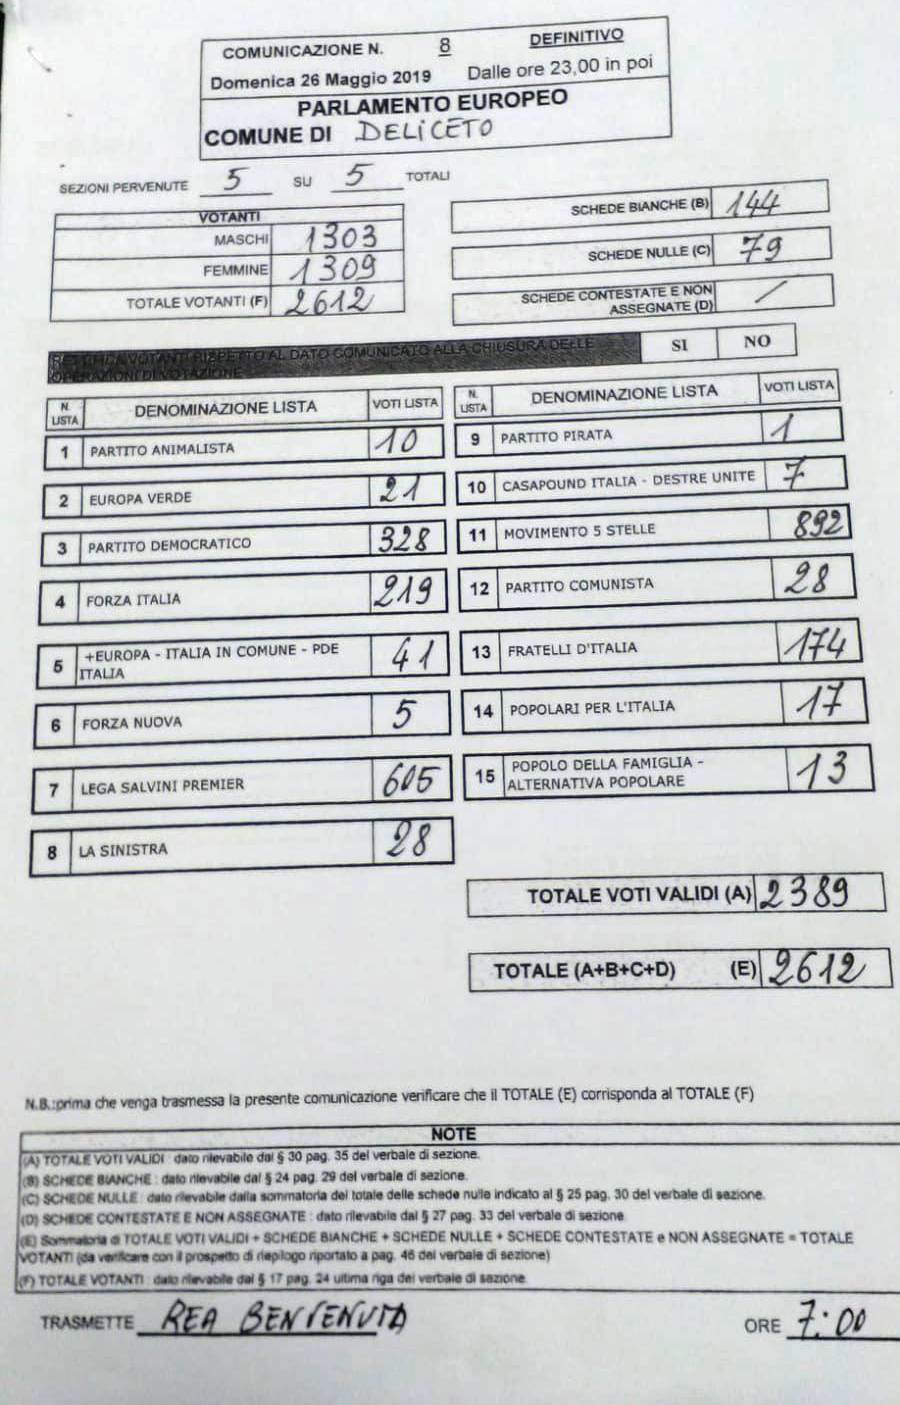 COMUNICAZIONE N. 8 DEFINITIVO
Domenica 26 Maggio 2019 Dalle ore 23,00 in poi
PARLAMENTO EUROPEO
COMUNE DI DELICETO
SEZIONI PERVENUTE 5 SU 5 TOTALI
VOTANTI
MASCHI 1303
FEMMINE 1309
TOTALE VOTANTI (F) 2612
SCHEDE BIANCHE (B) 144
SCHEDE NULLE (C) 79
SCHEDE CONTESTATE E NON
ASSEGNATE (D) /
RETTIFICA VOTANTI RISPETTO AL DATO COMUNICATO ALLA CHIUSURA DELLE
OPERAZIONI DI VOTAZIONE
SI NO
N. LISTA DENOMINAZIONE LISTA VOTI LISTA
1 PARTITO ANIMALISTA 10
2 EUROPA VERDE 21
3 PARTITO DEMOCRATICO 328
4 FORZA ITALIA 219
5 +EUROPA - ITALIA IN COMUNE - PDE
ITALIA 41
6 FORZA NUOVA 5
7 LEGA SALVINI PREMIER 605
8 LA SINISTRA 28
N. LISTA DENOMINAZIONE LISTA VOTI LISTA
9 PARTITO PIRATA 1
10 CASAPOUND ITALIA - DESTRE UNITE 7
11 MOVIMENTO 5 STELLE 892
12 PARTITO COMUNISTA 28
13 FRATELLI D'ITALIA 174
14 POPOLARI PER L'ITALIA 17
15 POPOLO DELLA FAMIGLIA -
ALTERNATIVA POPOLARE 13
TOTALE VOTI VALIDI (A) 2389
TOTALE (A+B+C+D) (E) 2612
N.B.:prima che venga trasmessa la presente comunicazione verificare che il TOTALE (E) corrisponda al TOTALE (F)
NOTE
(A) TOTALE VOTI VALIDI : dato rilevabile dal § 30 pag. 35 del verbale di sezione.
(B) SCHEDE BIANCHE : dato rilevabile dal § 24 pag. 29 del verbale di sezione.
(C) SCHEDE NULLE : dato rilevabile dalla sommatoria del totale delle schede nulle indicato al § 25 pag. 30 del verbale di sezione.
(D) SCHEDE CONTESTATE E NON ASSEGNATE : dato rilevabile dal § 27 pag. 33 del verbale di sezione
(E) Sommatoria di TOTALE VOTI VALIDI + SCHEDE BIANCHE + SCHEDE NULLE + SCHEDE CONTESTATE e NON ASSEGNATE = TOTALE
VOTANTI (da verificare con il prospetto di riepilogo riportato a pag. 46 del verbale di sezione)
(F) TOTALE VOTANTI : dato rilevabile dal § 17 pag. 24 ultima riga del verbale di sezione
TRASMETTE REA BENVENUTO ORE 7:00